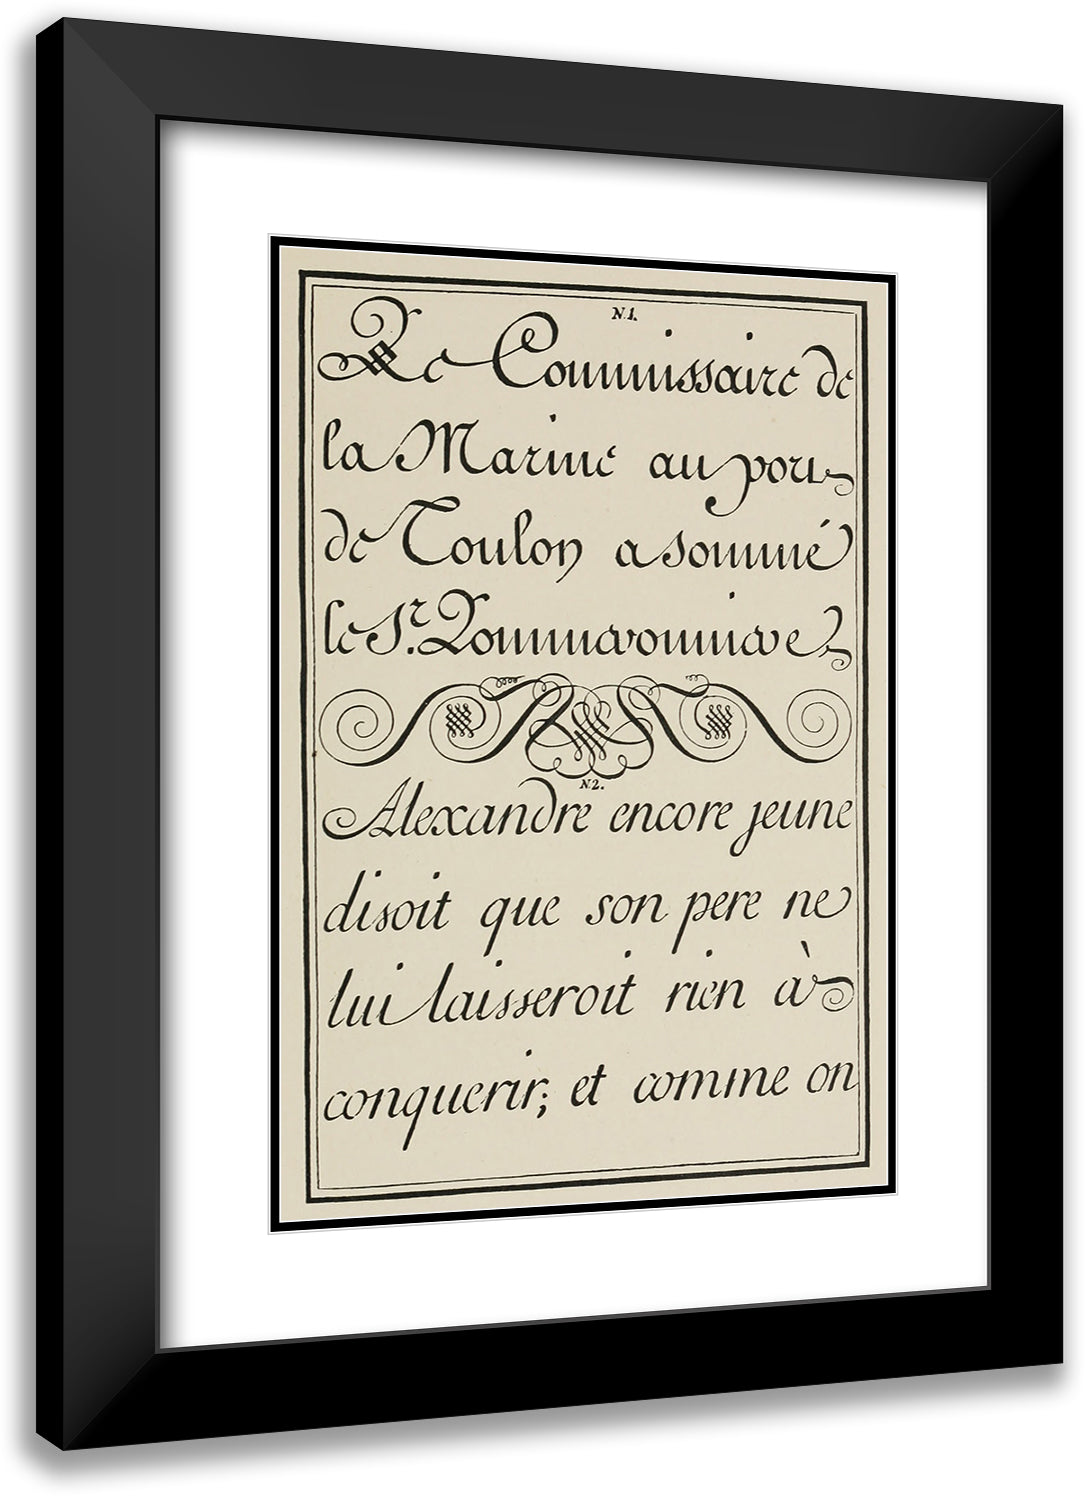 N.1.
Le Commissaire de
la Marine au port
de Toulon a sommé
le Sr.
N.2.
Alexandre encore jeune
disoit que son pere ne
lui laisseroit rien à
conquerir; et comme on